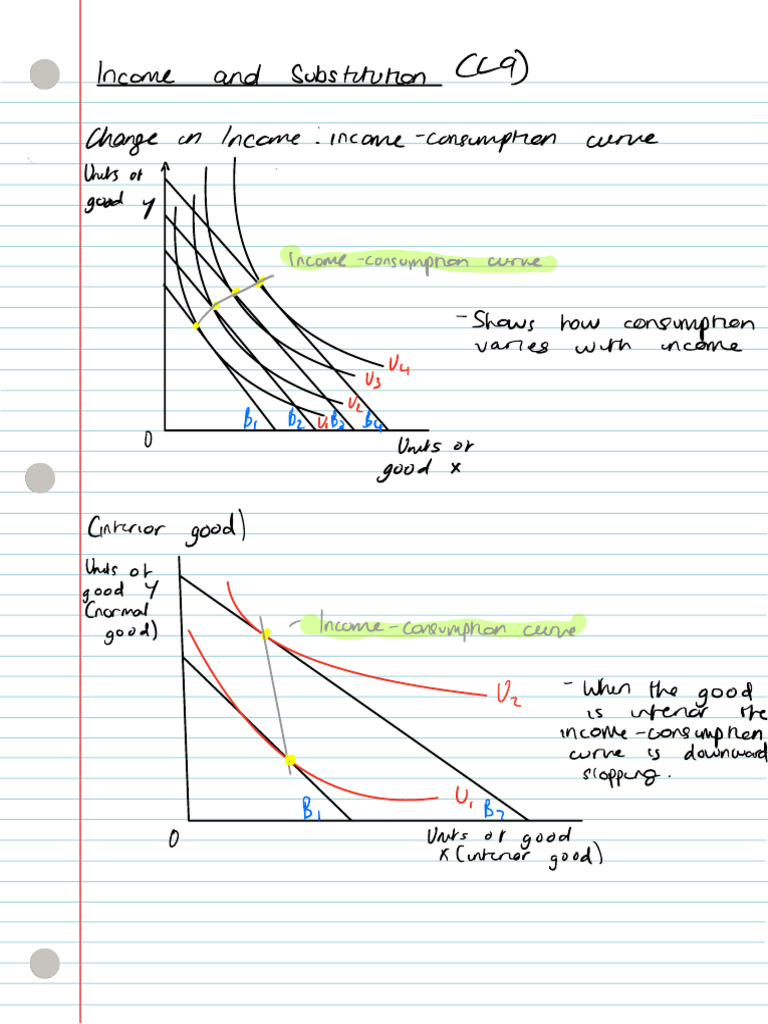 Income and Substitution (L9)
Change in Income: income-consumption curve
Units of
good y
Income-consumption curve
- Shows how consumption
varies with income
U4
U3
U2
B1 B2 U1 B3 B4
0
Units of
good x
(inferior good)
Units of
good y
(normal
good)
- Income-consumption curve
U2
- When the good
is inferior the
income-consumption
curve is downward
slopping.
U1
B1
B2
0
Units of good
x (inferior good)